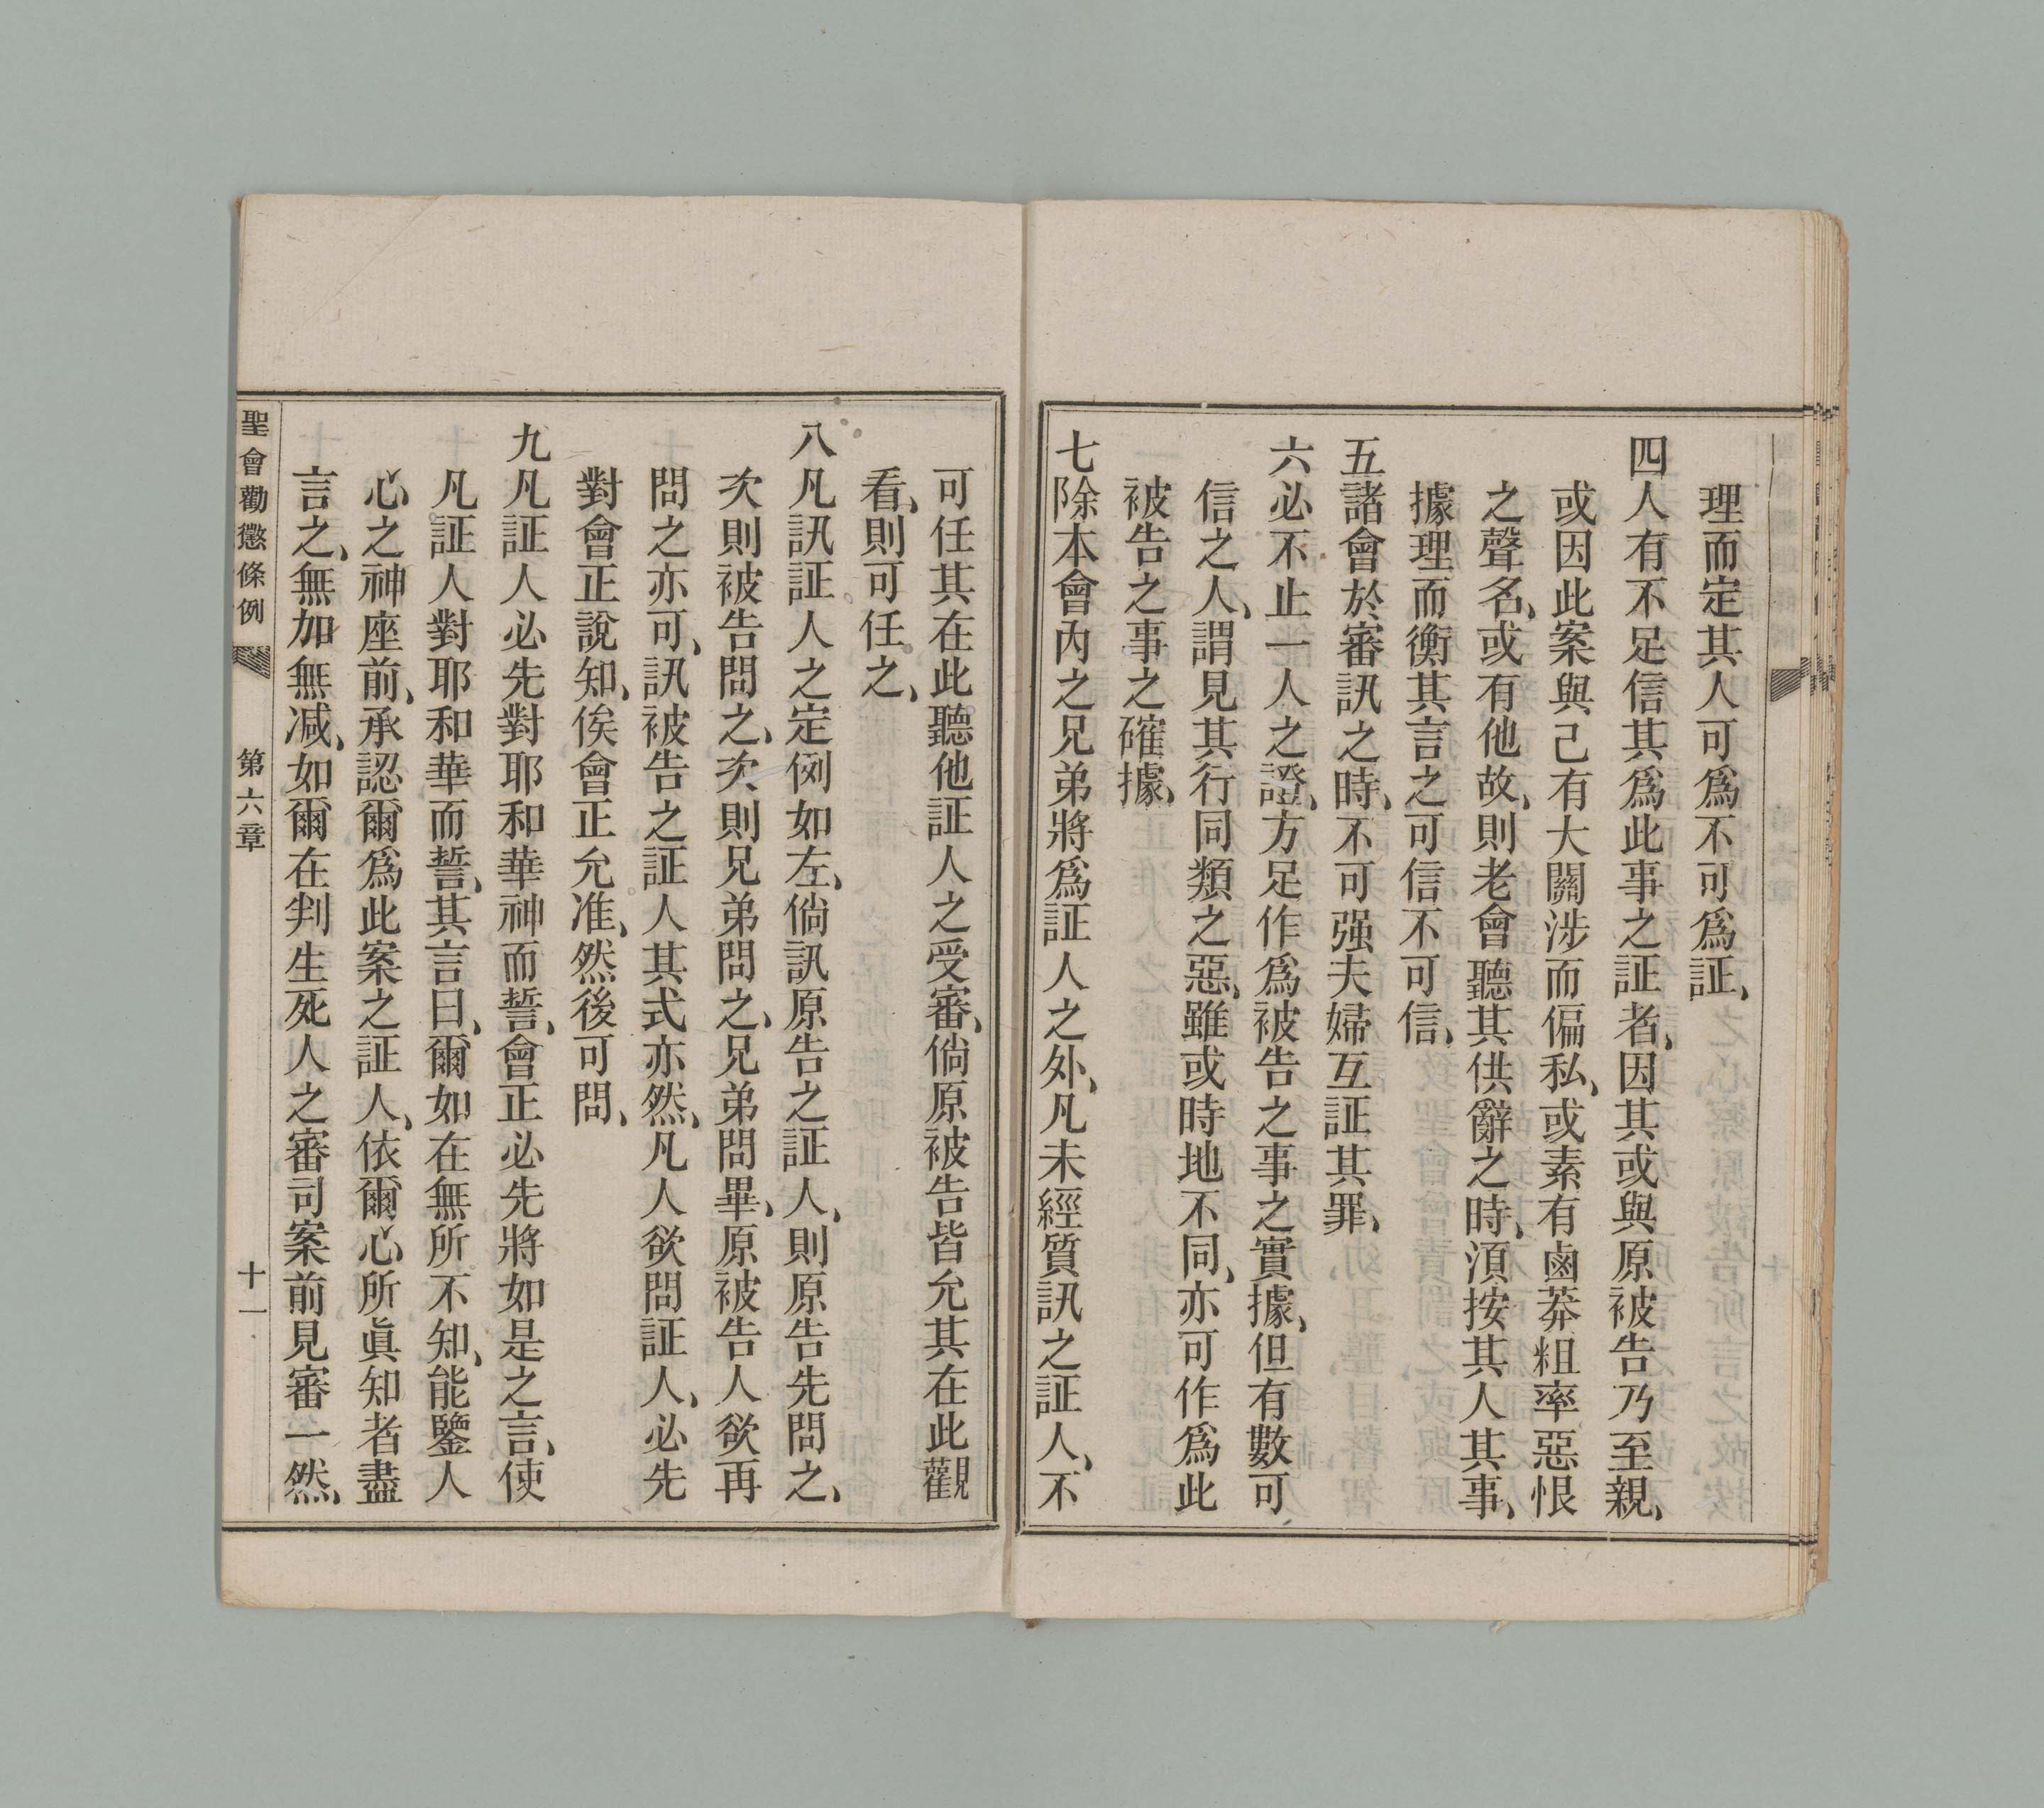 理而定其人可爲不可爲証、
四人有不足信其爲此事之証者、因其或與原被告乃至親、
或因此案與己有大關涉而偏私、或素有鹵莽粗率惡恨
之聲名、或有他故、則老會聽其供辭之時、湏按其人其事、
據理而衡其言之可信不可信、
五諸會於審訊之時、不可强夫婦互証其罪、
六必不止一人之證、方足作爲被告之事之實據、但有數可
信之人、謂見其行同類之惡、雖或時地不同、亦可作爲此
被告之事之確據、
七除本會內之兄弟將爲証人之外、凡未經質訊之証人、不
可任其在此聽他証人之受審、倘原被告皆允其在此觀
看、則可任之、
八凡訊証人之定例如左、倘訊原告之証人、則原告先問之、
次則被告問之、次則兄弟問之、兄弟問畢、原被告人欲再
問之亦可、訊被告之証人其式亦然、凡人欲問証人、必先
對會正說知、俟會正允准、然後可問、
九凡証人必先對耶和華神而誓、會正必先將如是之言、使
凡証人對耶和華而誓、其言曰、爾如在無所不知、能鑒人
心之神座前、承認爾爲此案之証人、依爾心所眞知者盡
言之、無加無減、如爾在判生死人之審司案前見審一然、
聖會勸懲條例 第六章 十一